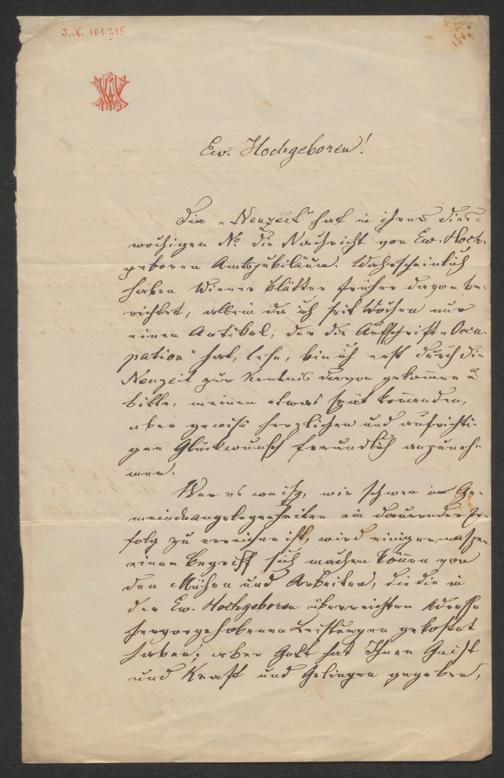 J.N. 101.215
Ew. Hochgeboren!
Die „Neuzeit" hat in ihrer dies-
wochigen No die Nachricht von Ew. Hoch-
geboren Amtsjubiläum. Wahrscheinlich
haben Wiener Blätter früher davon be-
richtet, allein da ich seit Wochen nur
einen Artikel, der die Aufschrift „Occu-
pation" hat, lese, bin ich erst durch die
Neuzeit zur Kentnis davon gekommen u
bitte, meinen etwas spät kommenden,
aber gewiss herzlichen und aufrichti-
gen Glückwunsch freundlich anzuneh-
men.
Wer es weiss, wie schwer in Ge-
meindeangelegenheiten ein dauernder Er-
folg zu erreichen ist, wird einigermassen
einen Begriff sich machen können von
den Mühen und Arbeiten, die die in
der Ew. Hochgeboren überreichten Adresse
hervorgehobenen Leistungen gekostet
haben; aber Gott hat Ihnen Geist
und Kraft und Gelingen gegeben,